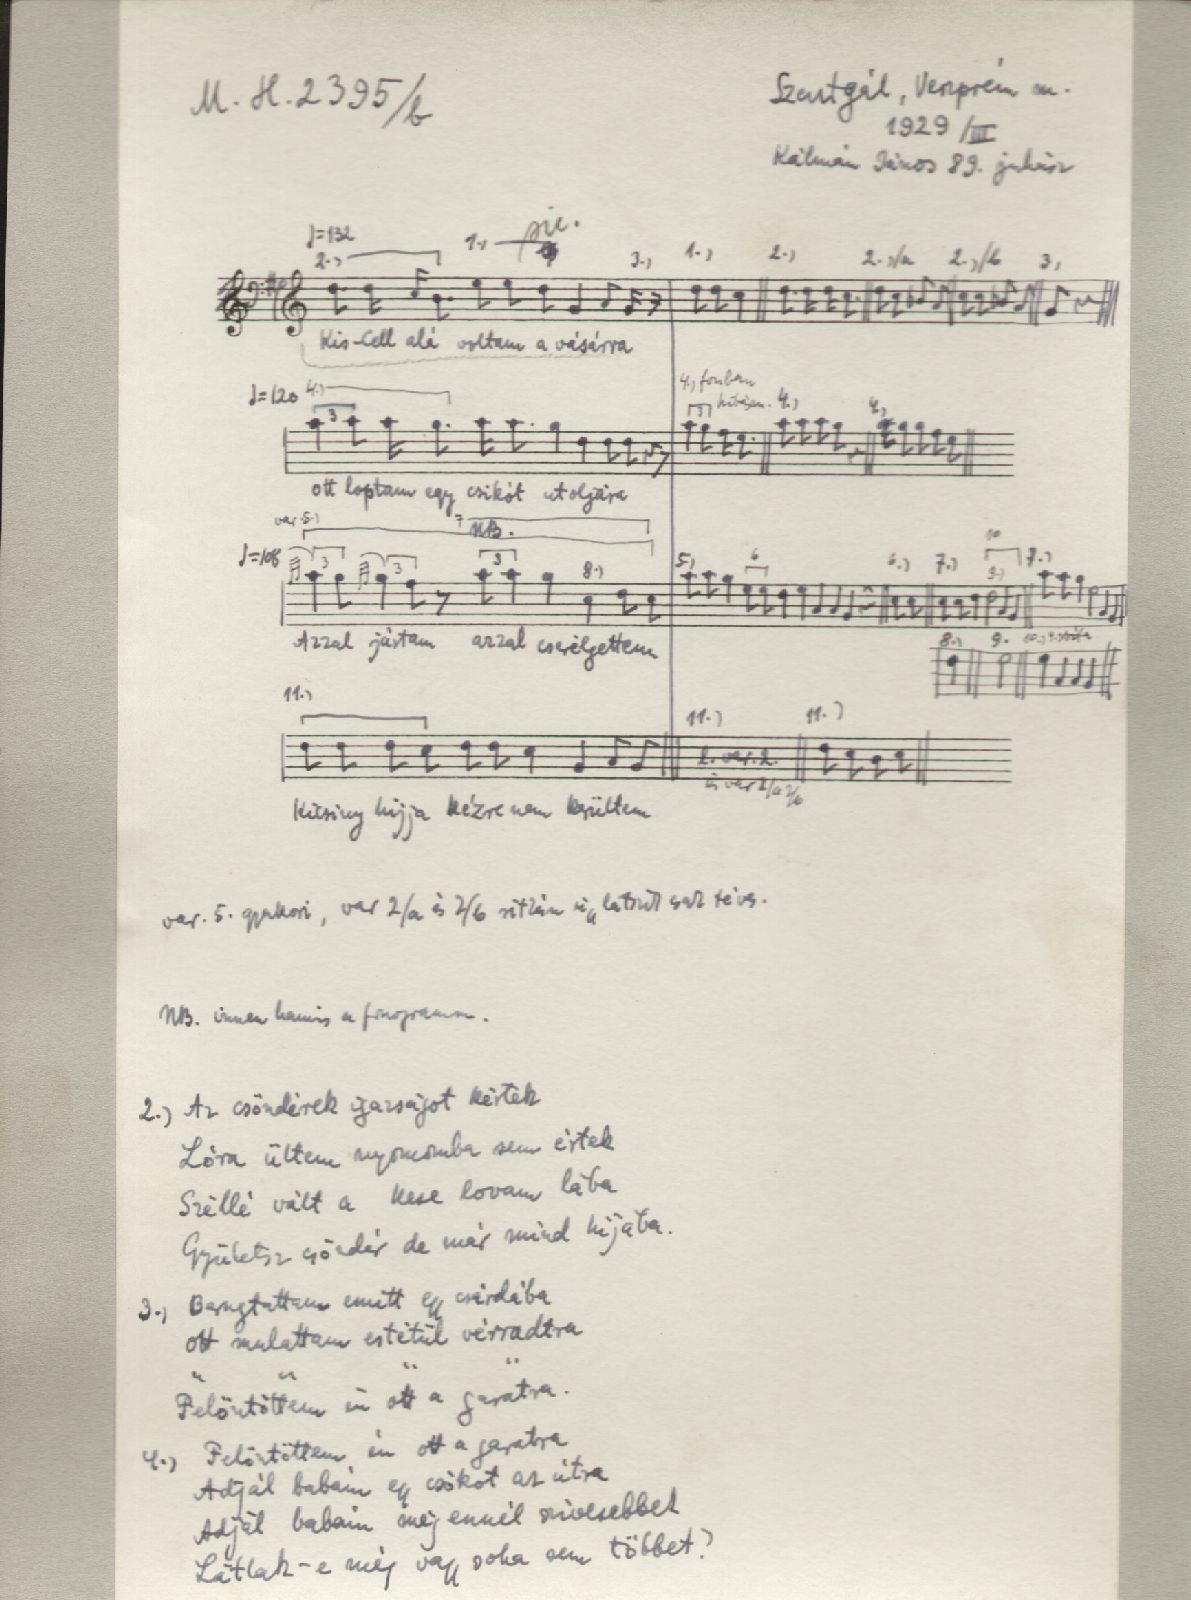 M. H. 2395/b
Szentgál, Veszprém m.
1929/III
Kálmán János 89. juhász
♩=132
2.) 1.) 3.) 1.) 2.) 2.)/a 2.)/b 3.)
Kis-Cell alá voltam a vásárra
♩=120 4.) 3 4.) 3 4.) 4.)
ott loptam egy csikót utoljára
var. 5.) 7 NB.
♩=108 3 3 3 8.) 5.) 6 6.) 7.) 10 9.) 7.)
Azzal jástam azzal cserélgettem
8.) 9. 10.)
11.) 11.) 11.)
l. var. 2.
és var 2/a 2/b
Kicsiny hijja kézre nem kerültem
var. 5. gyakori, var 2/a és 2/b ritkán is
NB. innen hamis a fonogramm.
2.) Az csöndérek igazságot kértek
Lóra ültem nyomomba sem értek
Széllé vált a kese lovam lába
Gyühetsz csöndér de már mind hijába.
3.) Barugtattam emitt egy csárdába
ott mulattam estétül vérradtra
" " " "
Felöntöttem én ott a garatra.
4.) Felöntöttem én ott a garatra
Adjál babám egy csókot az útra
Adjál babám még ennél szivesebbet
Látlak-e még vagy soha sem többet?